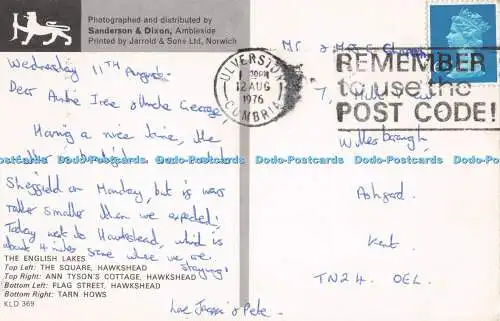 Photographed and distributed by
Sanderson & Dixon, Ambleside
Printed by Jarrold & Sons Ltd, Norwich
Wednesday 11TH August
Dear Auntie Iree & Uncle George
Having a nice time, the
Sheffield on Monday, but is was
rather smaller then we expected.
Today went to Hawkshead, which is
about 4 miles some where we are
staying
THE ENGLISH LAKES
Top Left: THE SQUARE, HAWKSHEAD
Top Right: ANN TYSON'S COTTAGE, HAWKSHEAD
Bottom Left: FLAG STREET, HAWKSHEAD
Bottom Right: TARN HOWS
KLD 369
Love & Pete
ULVERSTON
12 AUG
1976
CUMBRIA
REMEMBER
to use the
POST CODE!
Mr & Mrs G
7,
Willesborough,
Ashford
Kent
TN24 OEL.
Dodo-Postcards Dodo-Postcards Dodo-Postcards Dodo-Postcards Dodo-Postcards Dodo-Postcards